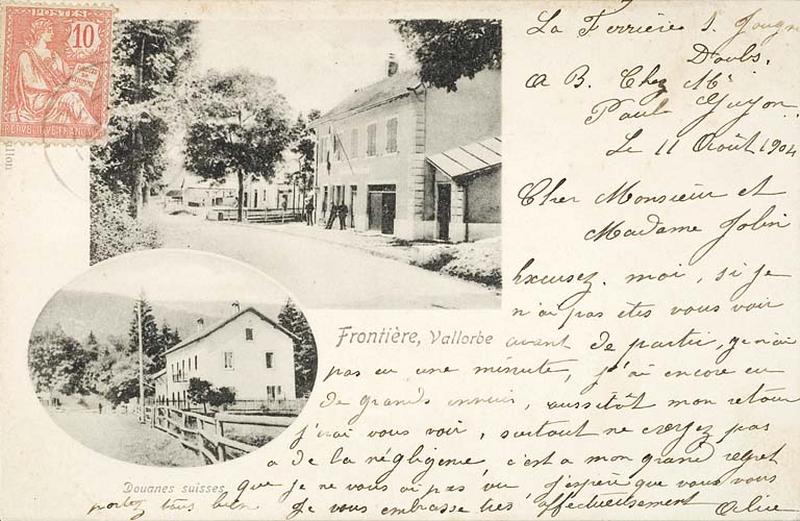 POSTES
10
REPUBLIQUE FRANÇAISE
La Ferrière s. Jougne
Doubs.
a B. Chez Mr
Paul Guyon
Le 11 Août 1904
Cher Monsieur et
Madame Jolin
Excusez. moi, si je
n'ai pas êtes vous voir
Frontière, Vallorbe
avant de partir, je n'ai
pas eu une minute, j'ai encore eu
de grands ennuis, aussitôt mon retour
j'irai vous voir, surtout ne croyez pas
a de la négligence c'est a mon grand regret
Douanes suisses.
que je ne vous ai pas vu J'espère que vous vous
portez tous bien Je vous embrasse très affectueusement Alice